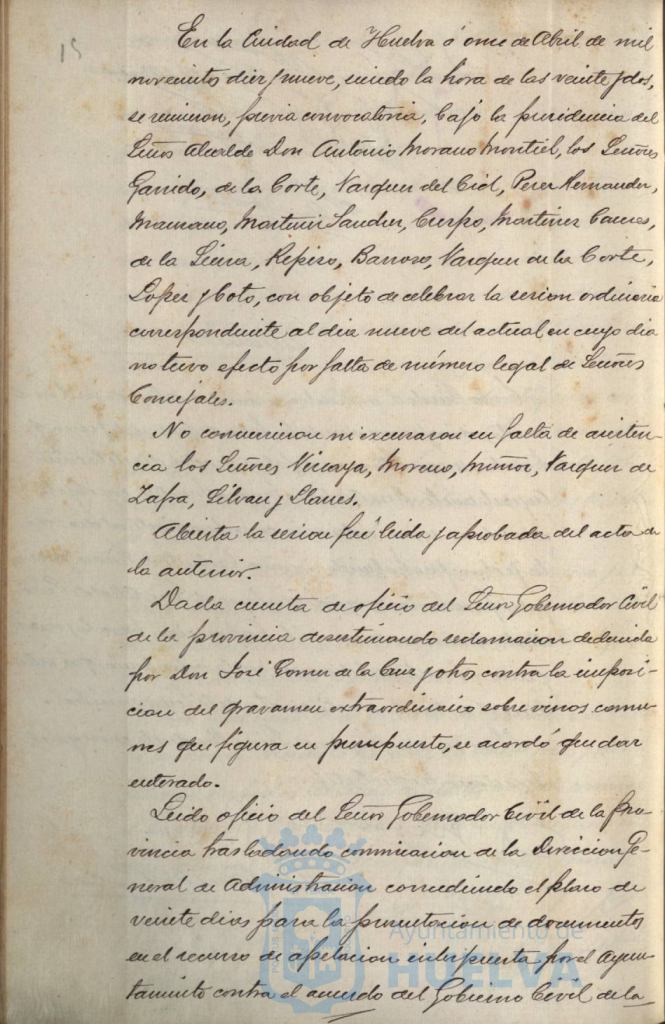 15
En la Ciudad de Huelva á once de Abril de mil
novecientos diez y nueve, siendo la hora de las veinte y dos,
se reunieron, previa convocatoria, bajo la presidencia del
Señor Alcalde Don Antonio Morano Montiel, los Señores
Garrido, de la Corte, Vazquez del Cid, Perez Hernandez,
Mamano, Martin Sanchez, Crespo, Martinez
de la Sierra, Repiso, Barroso, Vazquez de la Corte,
Lopez y Coto, con objeto de celebrar la sesion ordinaria
correspondiente al dia nueve del actual en cuyo dia
no tuvo efecto por falta de número legal de Señores
Concejales.
No concurrieron ni excusaron su falta de asisten-
cia los Señores Vizcaya, Moreno, Muñoz, Vazquez de
Zafra, Silvan y Llanes.
Abierta la sesion fué leida y aprobada del acta de
la anterior.
Dada cuenta de oficio del Señor Gobernador Civil
de la provincia desestimando reclamacion deducida
por Don José Gomez de la Cruz y otros contra la imposi-
cion del gravamen extraordinario sobre vinos comu-
nes que figura en presupuesto, se acordó quedar
enterado.
Leido oficio del Señor Gobernador Civil de la pro-
vincia trasladando comunicacion de la Direccion Ge-
neral de Administracion concediendo el plazo de
veinte dias para la presentacion de documentos
en el recurso de apelacion interpuesta por el Ayun-
tamiento contra el acuerdo del Gobierno Civil de la
Ayuntamiento de
HUELVA